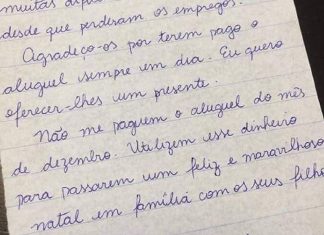 muitas
desde que perderam os empregos.
Agradeço-os por terem pago o
aluguel sempre em dia. Eu quero
oferecer-lhes um presente.
Não me paguem o aluguel do mês
de dezembro. Utilizem esse dinheiro
para passarem um feliz e maravilhoso
natal em família com os seus filho